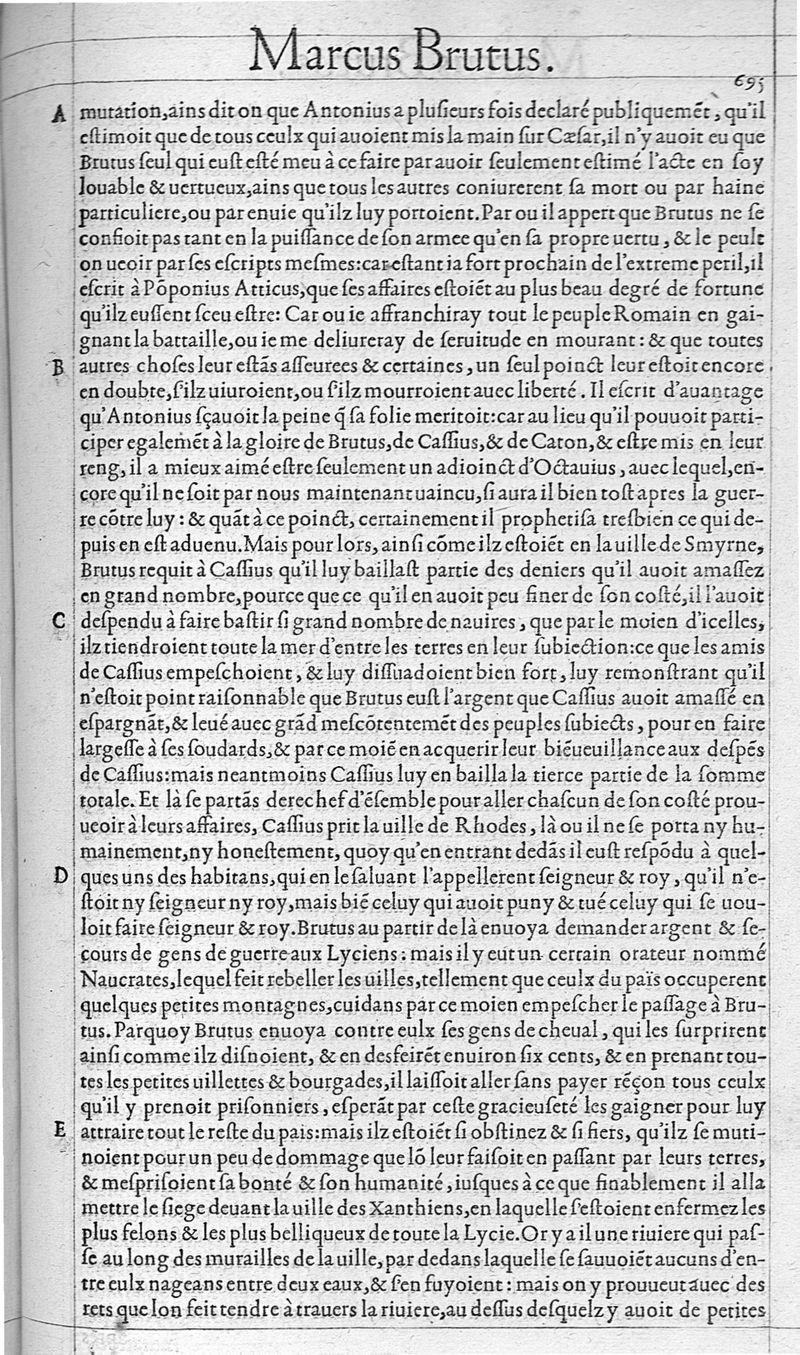 Marcus Brutus.
695
A mutation,ains dit on que Antonius a pluſieurs fois declaré publiquemēt, qu'il
eſtimoit que de tous ceulx qui auoient mis la main ſur Cæſar,il n'y auoit eu que
Brutus ſeul qui euſt eſté meu à ce faire par auoir ſeulement eſtimé l'acte en ſoy
louable & uertueux,ains que tous les autres coniurerent ſa mort ou par haine
particuliere,ou par enuie qu'ilz luy portoient.Par ou il appert que Brutus ne ſe
confioit pas tant en la puiſſance de ſon armee qu'en ſa propre uertu, & le peult
on ueoir par ſes eſcripts meſmes:car eſtant ia fort prochain de l'extreme peril,il
eſcrit à Pōponius Atticus,que ſes affaires eſtoiēt au plus beau degré de fortune
qu'ilz euſſent ſceu eſtre: Car ou ie affranchiray tout le peuple Romain en gai-
gnant la battaille,ou ie me deliureray de ſeruitude en mourant: & que toutes
B autres choſes leur eſtās aſſeurees & certaines, un ſeul poinct leur eſtoit encore
en doubte,ſ'ilz uiuroient,ou ſ'ilz mourroient auec liberté. Il eſcrit d'auantage
qu'Antonius ſçauoit la peine q̃ ſa folie meritoit:car au lieu qu'il pouuoit parti-
ciper egalemēt à la gloire de Brutus,de Caſſius,& de Caton,& eſtre mis en leur
reng, il a mieux aimé eſtre ſeulement un adioinct d'Octauius, auec lequel,en-
core qu'il ne ſoit par nous maintenant uaincu,ſi aura il bien toſt apres la guer-
re cōtre luy: & quāt à ce poinct, certainement il prophetiſa treſbien ce qui de-
puis en eſt aduenu.Mais pour lors, ainſi cōme ilz eſtoiēt en la uille de Smyrne,
Brutus requit à Caſſius qu'il luy baillaſt partie des deniers qu'il auoit amaſſez
en grand nombre,pource que ce qu'il en auoit peu finer de ſon coſté,il l'auoit
C deſpendu à faire baſtir ſi grand nombre de nauires, que par le moien d'icelles,
ilz tiendroient toute la mer d'entre les terres en leur ſubiection:ce que les amis
de Caſſius empeſchoient, & luy diſſuadoient bien fort, luy remonſtrant qu'il
n'eſtoit point raiſonnable que Brutus euſt l'argent que Caſſius auoit amaſſé en
eſpargnāt,& leué auec grād meſcōtentemēt des peuples ſubiects, pour en faire
largeſſe à ſes ſoudards,& par ce moiē en acquerir leur biēueuillance aux deſpēs
de Caſſius:mais neantmoins Caſſius luy en bailla la tierce partie de la ſomme
totale. Et là ſe partās derechef d'ēſemble pour aller chaſcun de ſon coſté prou-
ueoir à leurs affaires, Caſſius prit la uille de Rhodes, là ou il ne ſe porta ny hu-
mainement,ny honeſtement, quoy qu'en entrant dedās il euſt reſpōdu à quel-
D ques uns des habitans,qui en le ſaluant l'appellerent ſeigneur & roy, qu'il n'e-
ſtoit ny ſeigneur ny roy,mais biē celuy qui auoit puny & tué celuy qui ſe uou-
loit faire ſeigneur & roy.Brutus au partir de là enuoya demander argent & ſe-
cours de gens de guerre aux Lyciens: mais il y eut un certain orateur nommé
Naucrates,lequel feit rebeller les uilles,tellement que ceulx du païs occuperent
quelques petites montagnes,cuidans par ce moien empeſcher le paſſage à Bru-
tus. Parquoy Brutus enuoya contre eulx ſes gens de cheual, qui les ſurprirent
ainſi comme ilz diſnoient, & en desfeirēt enuiron ſix cents, & en prenant tou-
tes les petites uillettes & bourgades,il laiſſoit aller ſans payer rēçon tous ceulx
qu'il y prenoit priſonniers, eſperāt par ceſte gracieuſeté les gaigner pour luy
E attraire tout le reſte du pais:mais ilz eſtoiēt ſi obſtinez & ſi fiers, qu'ilz ſe muti-
noient pour un peu de dommage que lō leur faiſoit en paſſant par leurs terres,
& meſpriſoient ſa bonté & ſon humanité, iuſques à ce que finablement il alla
mettre le ſiege deuant la uille des Xanthiens,en laquelle ſ'eſtoient enfermez les
plus felons & les plus belliqueux de toute la Lycie. Or y a il une riuiere qui paſ-
ſe au long des murailles de la uille, par dedans laquelle ſe ſauuoiēt aucuns d'en-
tre eulx nageans entre deux eaux,& ſ'en fuyoient: mais on y prouueut auec des
rets que lon feit tendre à trauers la riuiere,au deſſus deſquelz y auoit de petites